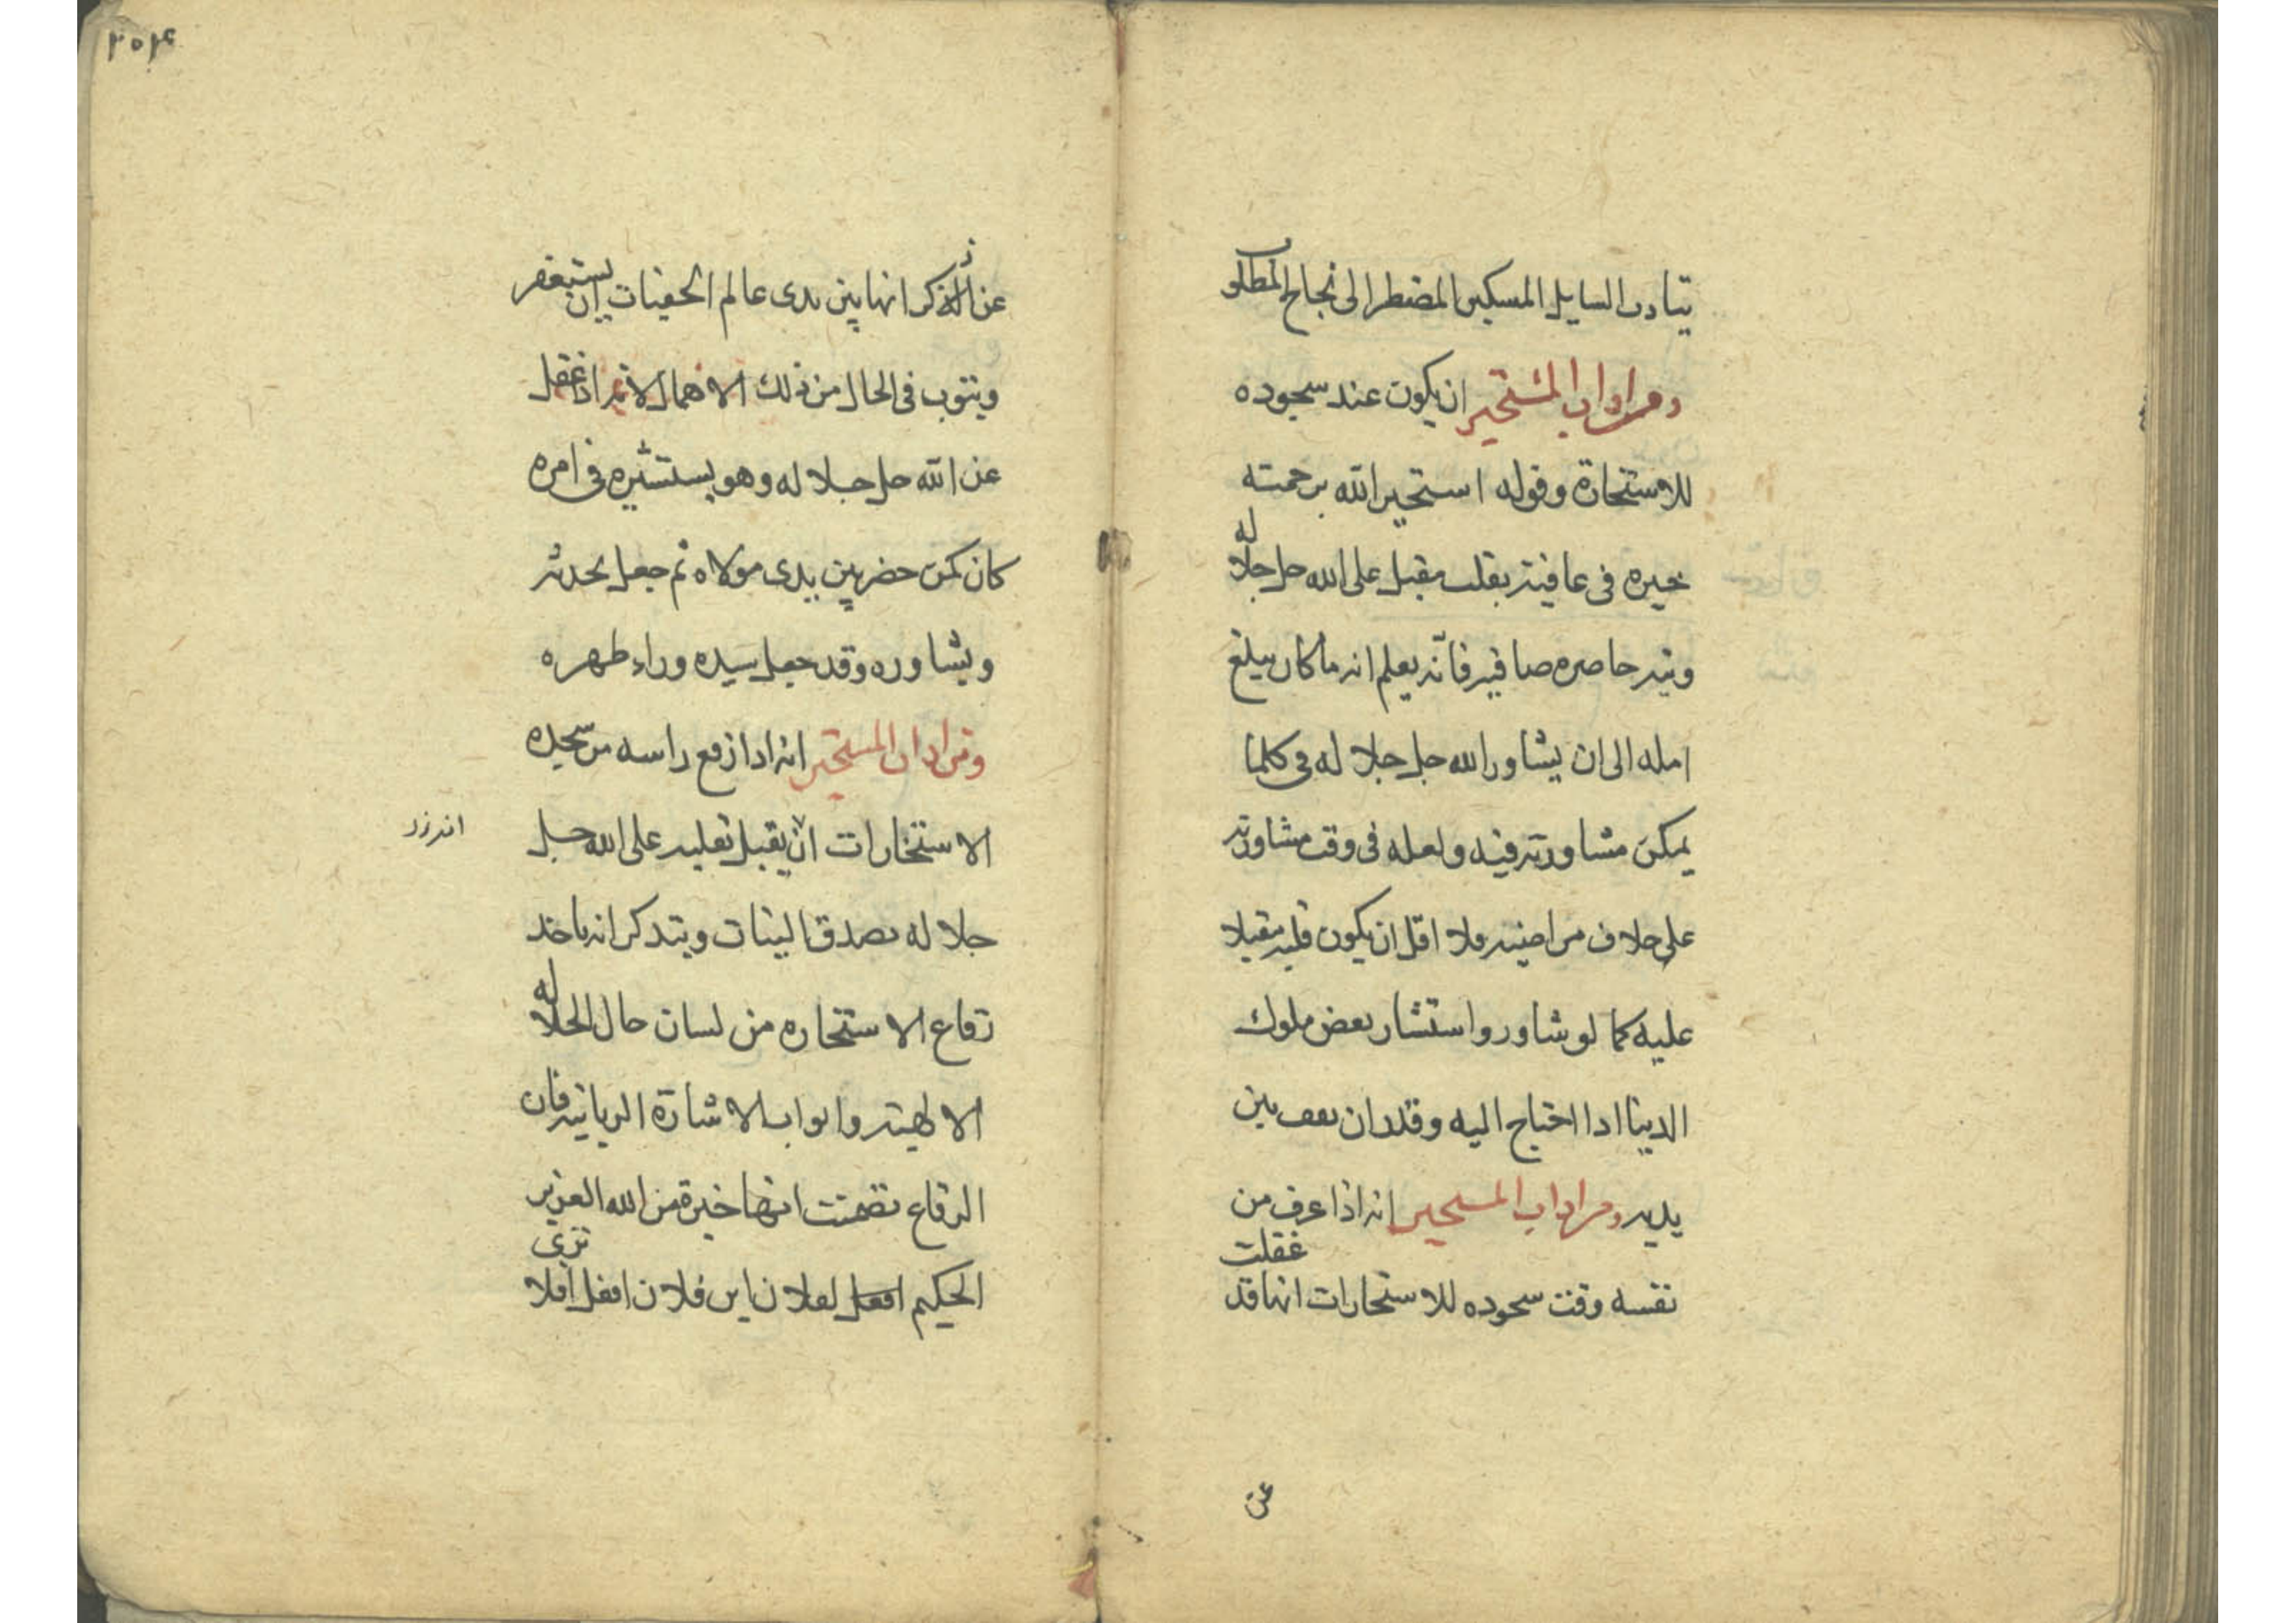 يتادب السايل المسكين المضطر الى نجاح المطلوب
ومن اداب المستخير ان يكون عند سجوده
للاستخارة وقوله استخير الله برحمته
خيره فى عافية بقلب مقبل على الله جل جلاله
ونية حاضره صافيه فانه يعلم انه ما كان يبلغ
امله الى ان يشاور الله جل جلاله فى كلما
يمكن مشاورته فيه ولعله فى وقت مشاورته
على خلاف مراضيه فلا اقل ان يكون قلبه مقبلا
عليه كما لو شاور واستشار بعض ملوك
الدينا اذا احتاج اليه وقدر ان يقف بين
يديه ومن اداب المستخير انه اذا عرف من
نفسه وقت سجوده للاستخارات انها قد غفلت
عن
٢٥٤
عن الذكر انها بين يدى عالم الخفيات ان يستغفر
ويتوب فى الحال من ذلك الاهمال لانه اذا غفل
عن الله جل جلاله وهو يستشيره فى امره
كان كمن حضر بين يدى مولاه ثم جعل يحدثه
ويشاوره وقد جعل سيده وراء ظهره
ومن اداب المستخير انه اذا رفع راسه من سجده
الاستخارات ان يقبل بقلبه على الله جل
جلاله بصدق النيات ويتذكر انه ياخذ
رقاع الاستخاره من لسان حال الجلاله
الالهية وابواب الاشارة الربانية فان
الرقاع تضمنت انها خيرة من الله العزيز
الحكيم لفلان ابن فلان افعل افلا ترى